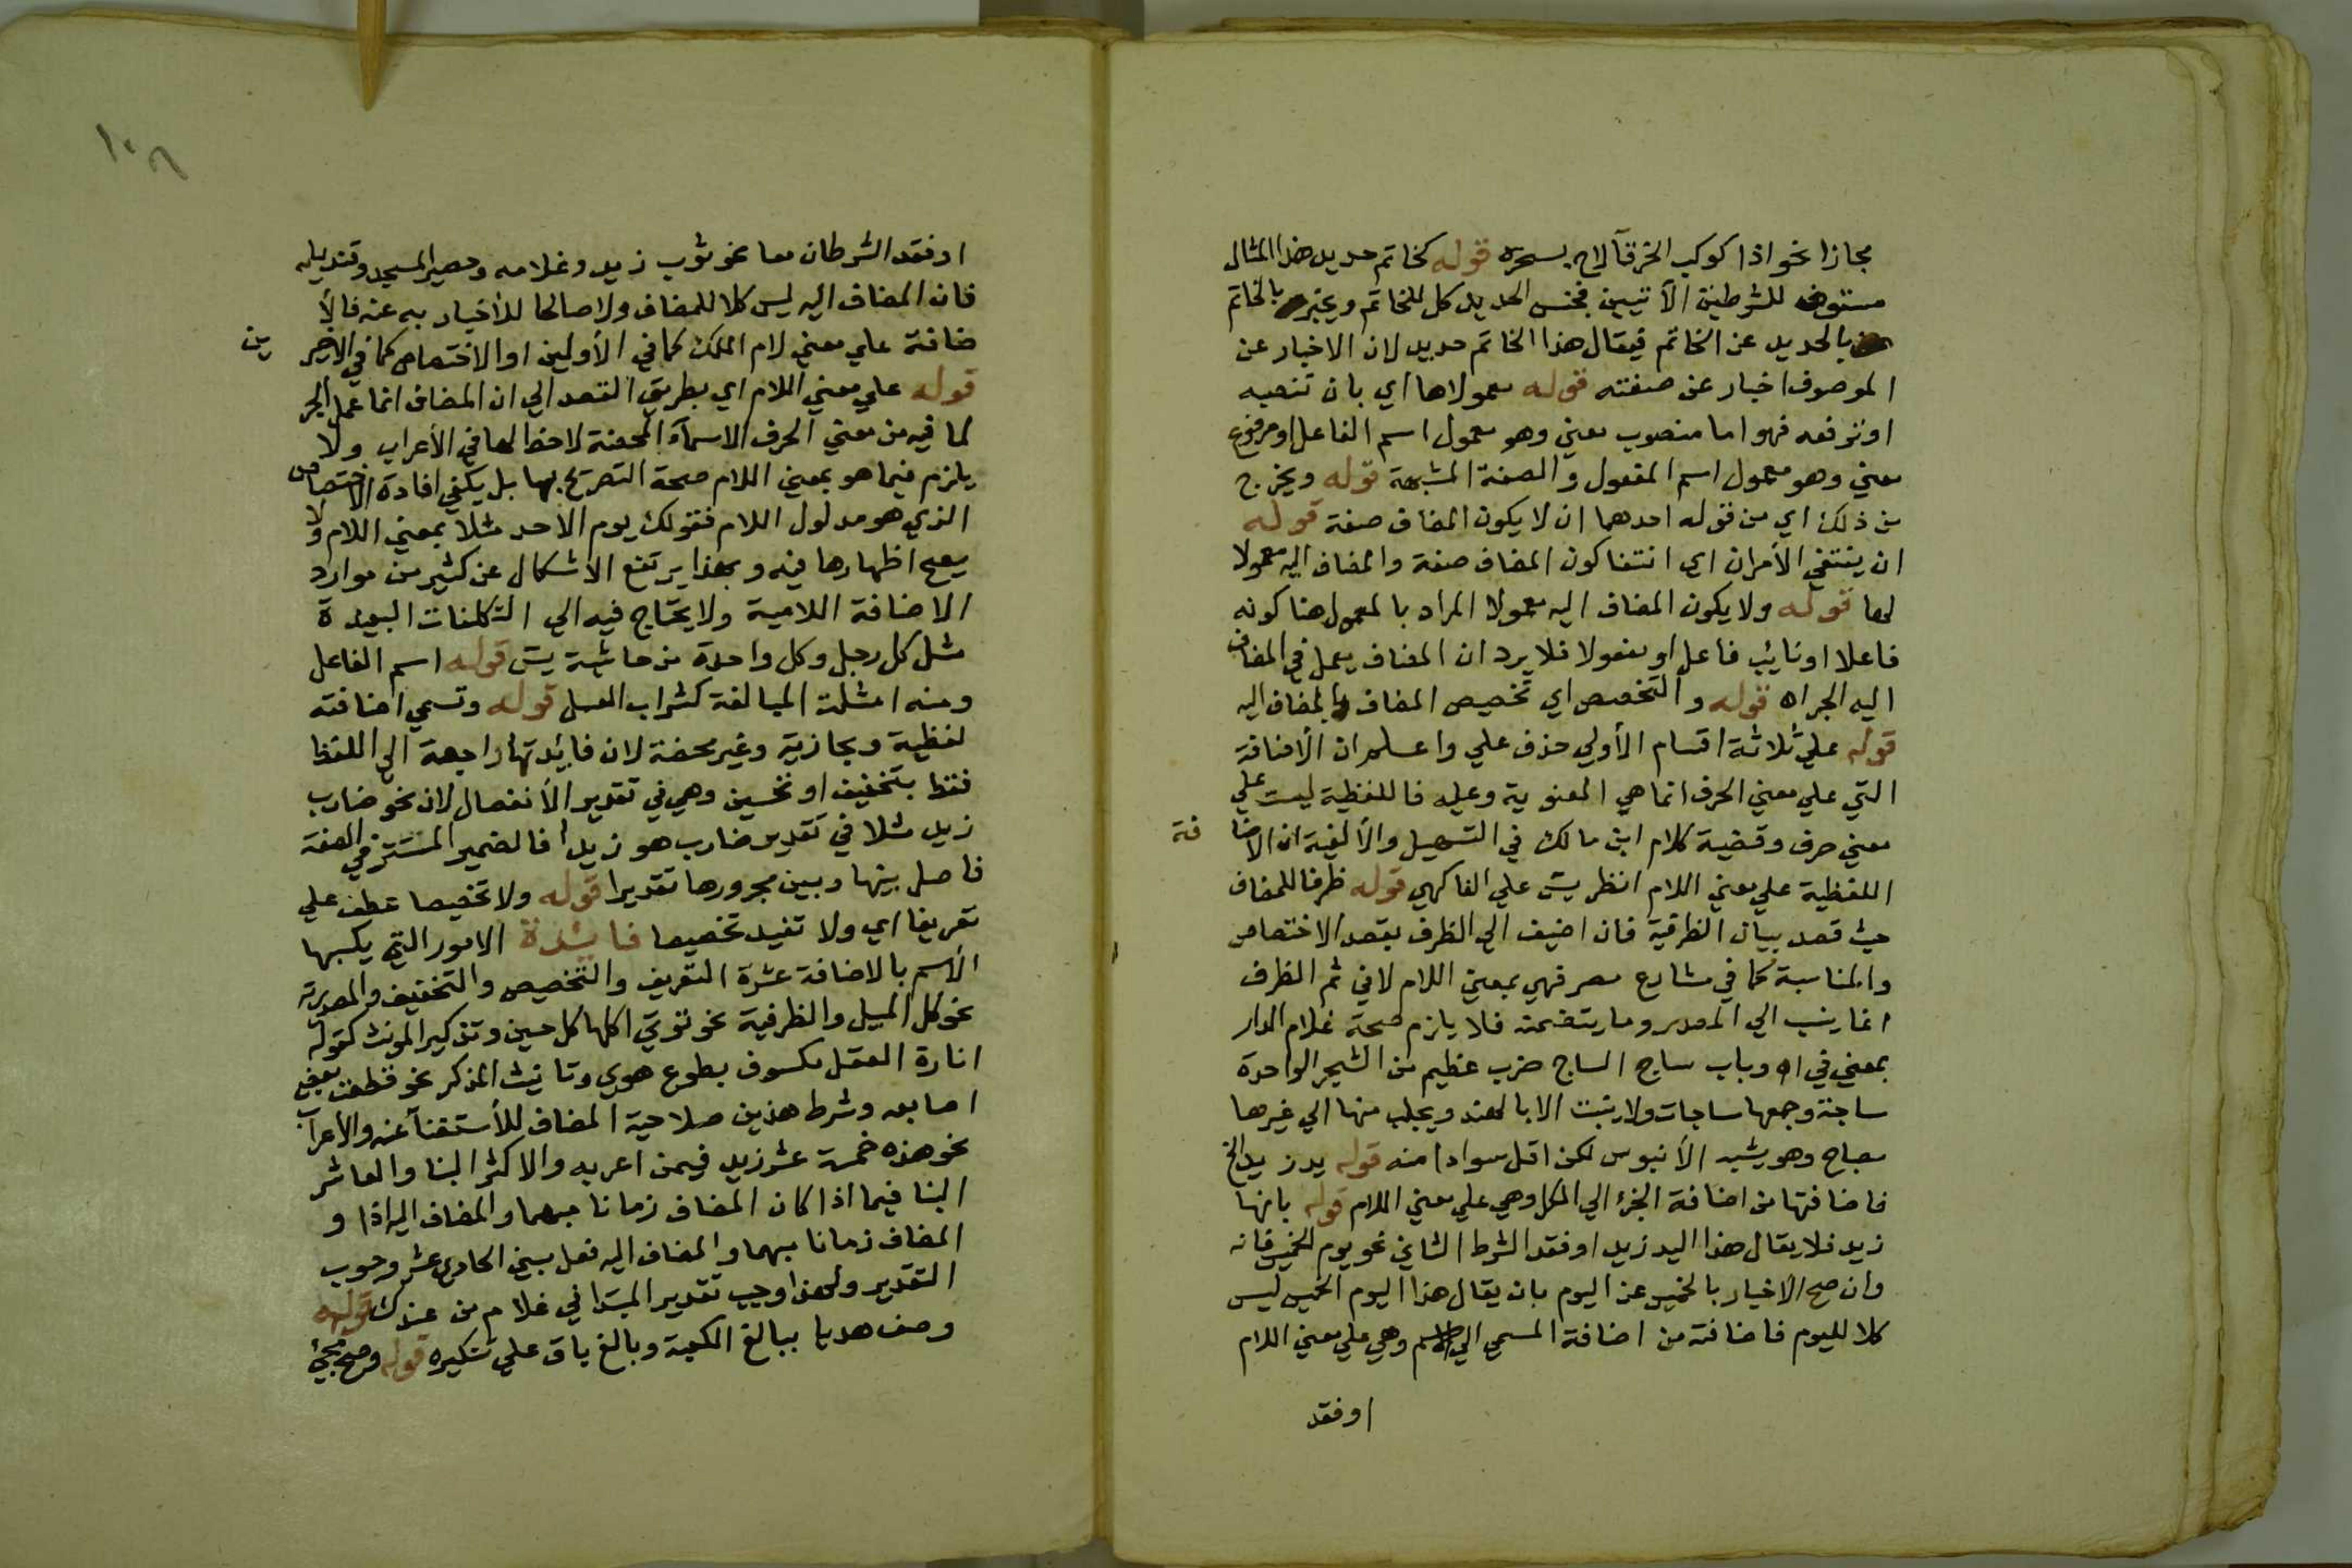 مجازا نحو اذا كوكب الخرقآ لاح بسحره قوله كخاتم حديد هذا المثال
مستوف للشرطين الآتيين فجنس الحديد كل للخاتم ويخبر بالخاتم
بالحديد عن الخاتم فيقال هذا الخاتم حديد لان الاخبار عن
الموصوف اخبار عن صفته قوله معمولاها اي بان تنصبه
او ترفعه فهو اما منصوب معني وهو معمول اسم الفاعل او مرفوع
معني وهو معمول اسم المفعول والصفة المشبهة قوله ويخرج
من ذلك اي من قوله احدهما ان لا يكون المضاف صفة قوله
ان ينتفي الأمران اي انتفا كون المضاف صفة والمضاف اليه معمولا
لها قوله ولا يكون المضاف اليه معمولا المراد بالمعمول هنا كونه
فاعلا او نايب فاعل او مفعولا فلا يرد ان المضاف يعمل في المضاف
اليه الجر اه قوله والتخصص اي تخصيص المضاف بالمضاف اليه
قوله علي ثلاثة اقسام الأولي حذف علي واعلم ان الأضافة
التي علي معني الحرف انما هي المعنوية وعليه فاللفظية ليست علي
معني حرف وقضية كلام ابن مالك في التسهيل والألفية ان الاضا فة
اللفظية علي معني اللام انظر يس علي الفاكهي قوله ظرفا للمضاف
حيث قصد بيان الظرفية فان اضيف الي الظرف بقصد الاختصاص
والمناسبة كما في مشارع مصر فهي بمعني اللام لا في ثم الظرف
انما ينسب الي المصدر وما يتضمنه فلا يلزم صحة غلام الدار
بمعني في اه وباب ساج الساج ضرب عظيم من الشجر الواحدة
ساجة وجمعها ساجات ولا ينبت الا بالهند ويجلب منها الي غيرها
مصباح وهو يشبه الأنبوس لكن اقل سوادا منه قوله يد زيد الخ
فاضافتها من اضافة الجزء الي الكل وهي علي معني اللام قوله بانها
زيد فلا يقال هذا اليد زيد او فقد الشرط الثاني نحو يوم الخميس فانه
وان صح الاخبار بالخميس عن اليوم بان يقال هذا اليوم الخميس ليس
كلا لليوم فاضافته من اضافة المسمي الي الاسم وهي علي معني اللام
او فقد
١٠٦
او فقد الشرطان معا نحو ثوب زيد وغلامه وحصير المسجد وقنديله
فان المضاف اليه ليس كلا للمضاف ولا صالحا للأخبار به عنه فالأ
ضافة علي معني لام الملك كما في الأولين او الاختصاص كما في الاخير ين
قوله علي معني اللام اي بطريق القصد الي ان المضاف انما عمل الجر
لما فيه من معني الحرف الاسمآء المحضة لاحظ لها في الأعراب ولا
يلزم فيما هو بمعني اللام صحة التصريح بها بل يكفي افادة الاختصاص
الذي هو مدلول اللام فقولك يوم الأحد مثلا بمعني اللام ولا
يصح اظهارها فيه وبهذا يرتفع الأشكال عن كثير من موارد
الاضافة اللامية ولا يحتاج فيه الي التكلفات البعيدة
مثل كل رجل وكل واحدة من حاشية يس قوله اسم الفاعل
ومنه امثلة المبالغة كشراب العسل قوله وتسمي اضافته
لفظية ومجازية وغير محضة لان فائدتها راجعة الي اللفظ
فقط بتخفيف او تحسين وهي في تقدير الأنفصال لان نحو ضارب
زيد مثلا في تقدير ضارب هو زيدا فالضمير المستتر في الصفة
فاصل بينها وبين مجرورها تقديرا قوله ولا تخصيصا عطف علي
تعريفا اي ولا تفيد تخصيصا فائدة الامور التي يكسبها
الأسم بالاضافة عشرة التعريف والتخصيص والتخفيف والمصدرية
نحو كل الميل والظرفية نحو تؤتي اكلها كل حين وتذكير المونث كقوله
انارة العقل مكسوف بطوع هوي وتانيث المذكر نحو قطعت بعض
اصابعه وشرط هذين صلاحية المضاف للأستغنآ عنه والأعراب
نحو هذه خمسة عشر زيد فيمن اعربه والاكثر البنا والعاشر
البنا فيما اذا كان المضاف زمانا مبهما والمضاف اليه اذا و
المضاف زمانا مبهما والمضاف اليه فعل مبني الحادي عشر وجوب
التقدير ولهذا وجب تقدير المبتدا في غلام من عندك قوله
وصف هديا ببالغ الكعبة وبالغ باق علي تنكيره قوله وصح مجئ